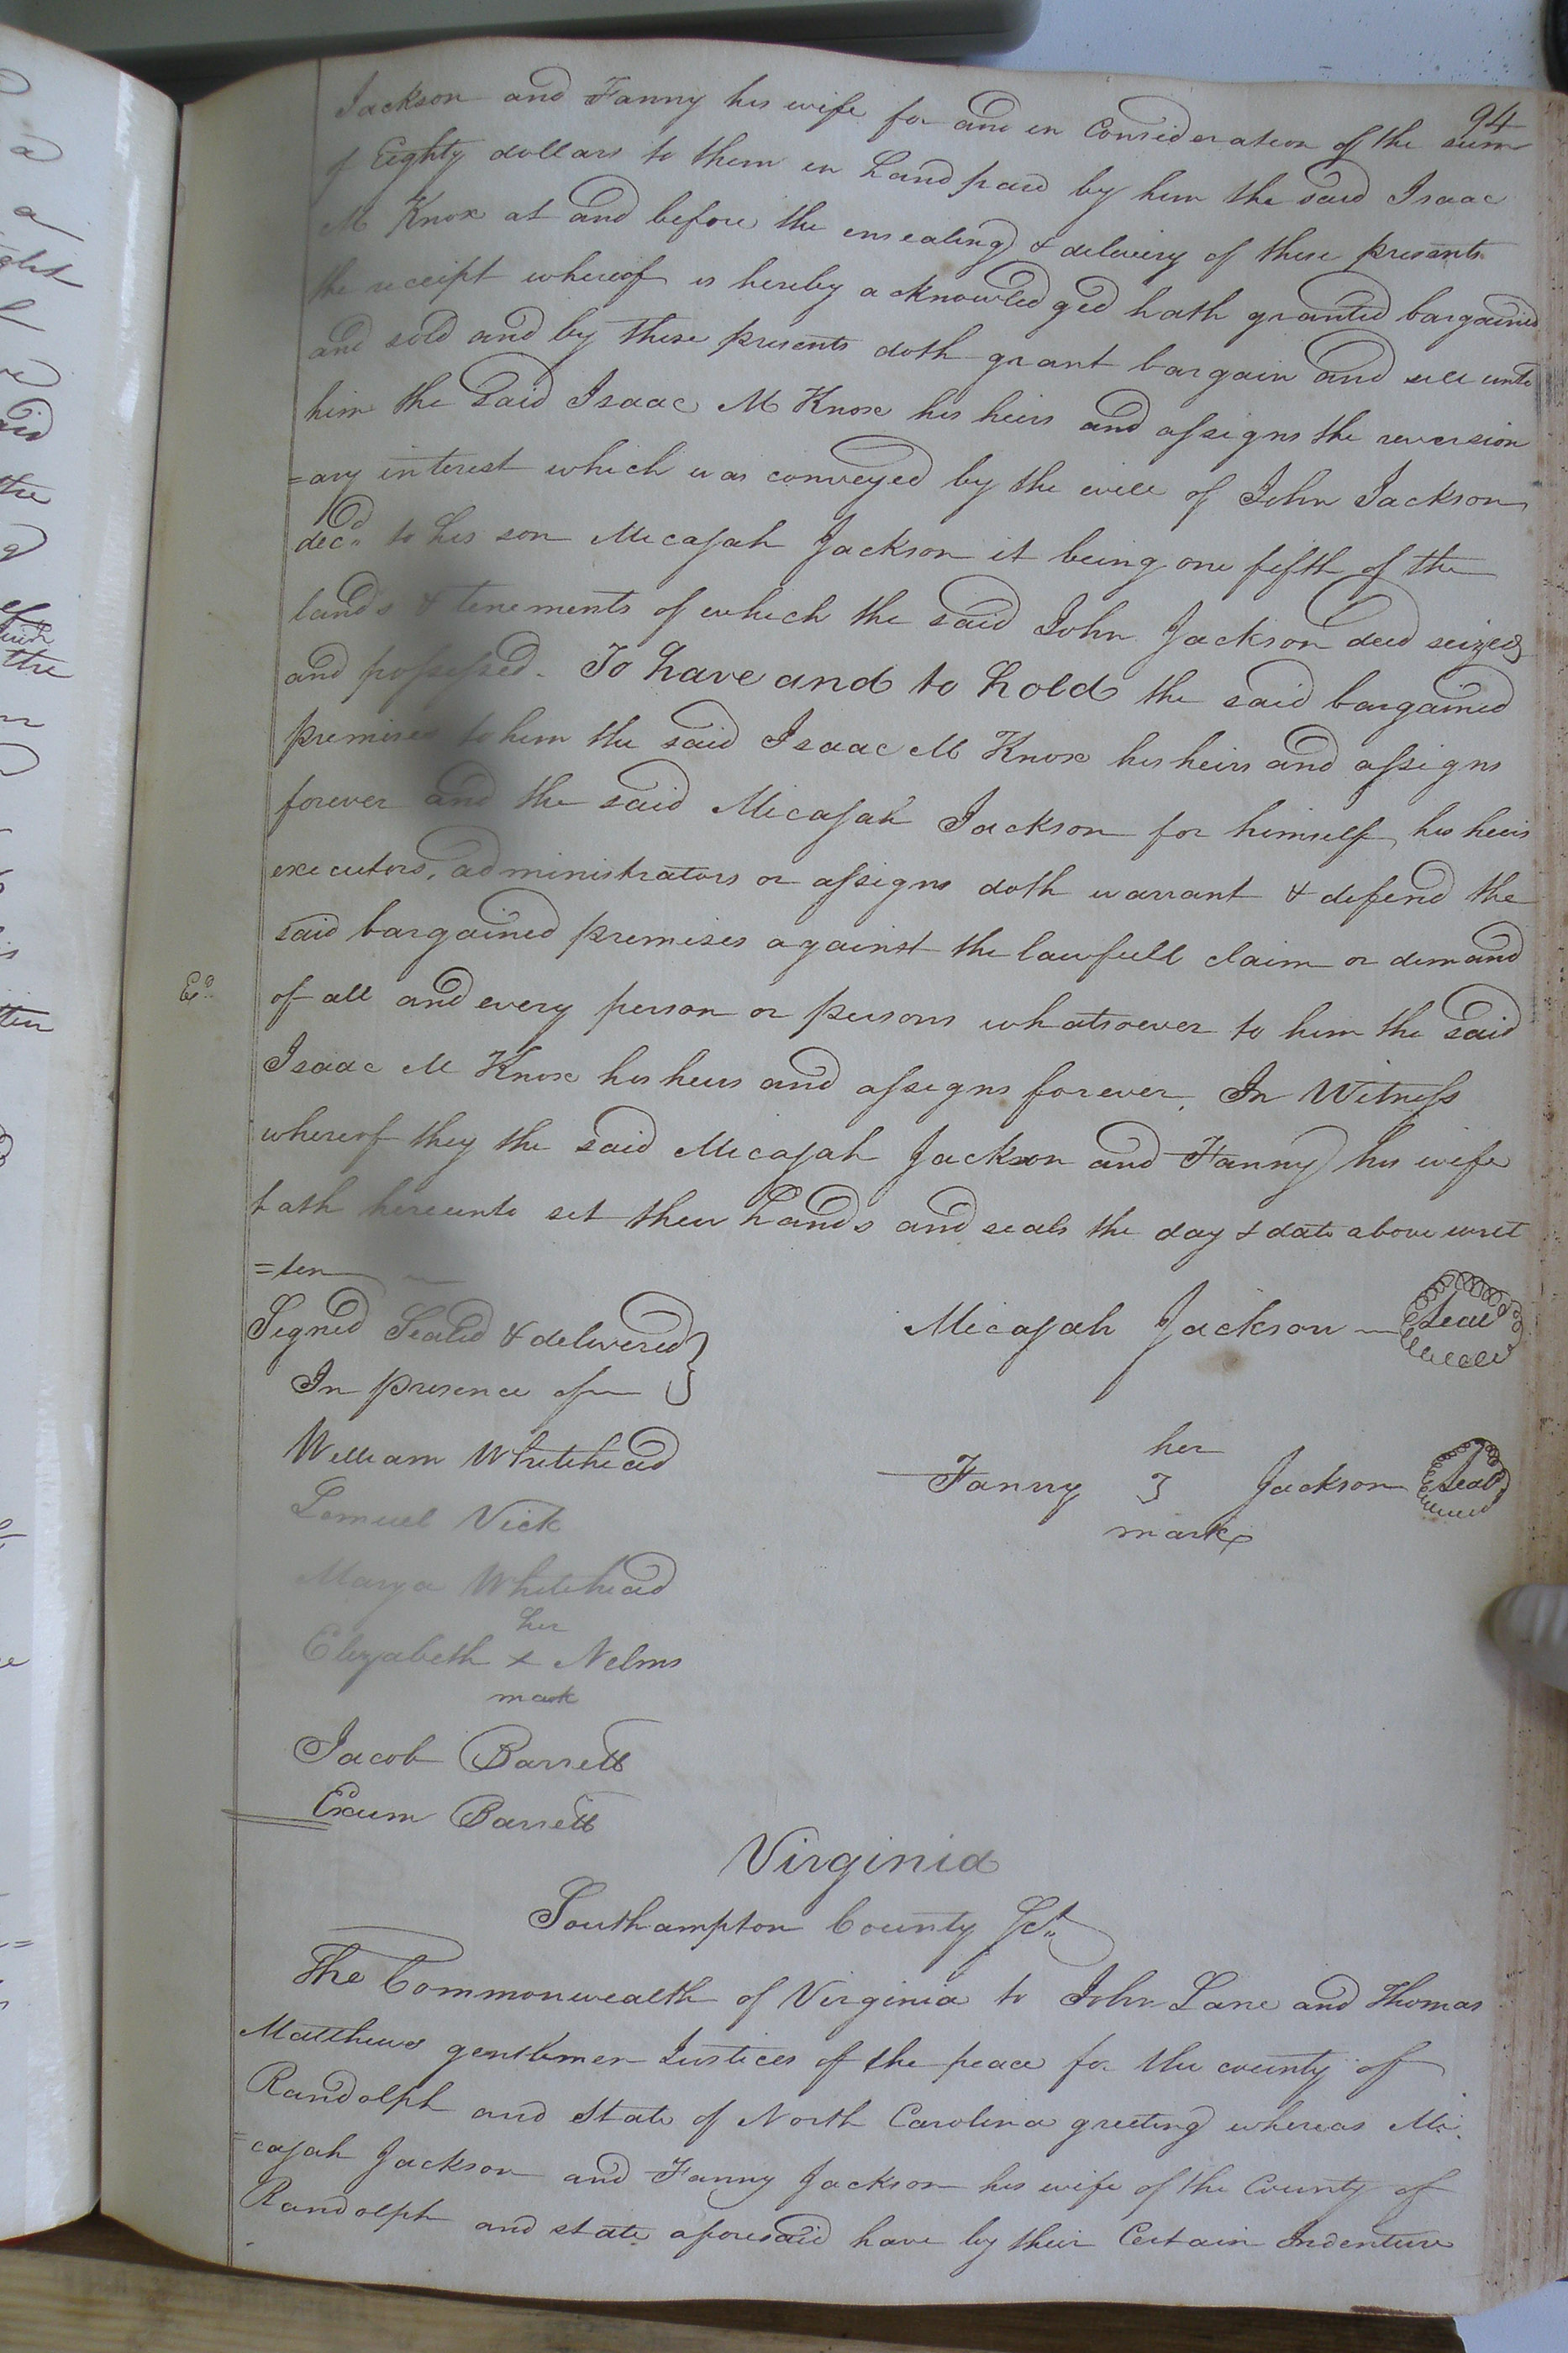 94
Jackson and Fanny his wife for and in Consideration of the sum
of Eighty dollars to them in hand paid by him the said Isaac
M Knox at and before the ensealing & delivery of these presents
the receipt whereof is hereby acknowledged hath granted bargained
and sold and by these presents doth grant bargain and sell unto
him the said Isaac M Knox his heirs and assigns the reversion
=ary interest which was conveyed by the will of John Jackson
decd. to his son Micajah Jackson it being one fifth of the
lands & tenements of which the said John Jackson died seized
and possessed. To have and to hold the said bargained
premises to him the said Isaac M Knox his heirs and assigns
forever and the said Micajah Jackson for himself, his heirs
executors, administrators or assigns doth warrant & defend the
said bargained premises against the lawfull claim or demand
Ed. of all and every person or persons whatsoever to him the said
Isaac M Knox his heirs and assigns forever. In Witness
whereof they the said Micajah Jackson and Fanny his wife
hath hereunto set their hands and seals the day & date above writ
=ten
Signed Sealed & delivered } Micajah Jackson Seal
In presence of
William Whitehead her
Fanny J Jackson Seal
Lemuel Vick mark
Marya Whitehead
her
Elizabeth x Nelms
mark
Jacob Barrett
Exum Barrett
Virginia
Southampton County Sct.
The Commonwealth of Virginia to John Lane and Thomas
Matthews gentlemen Justices of the peace for the county of
Randolph and State of North Carolina greeting whereas Mi
=cajah Jackson and Fanny Jackson his wife of the County of
Randolph and state aforesaid have by their Certain Indenture